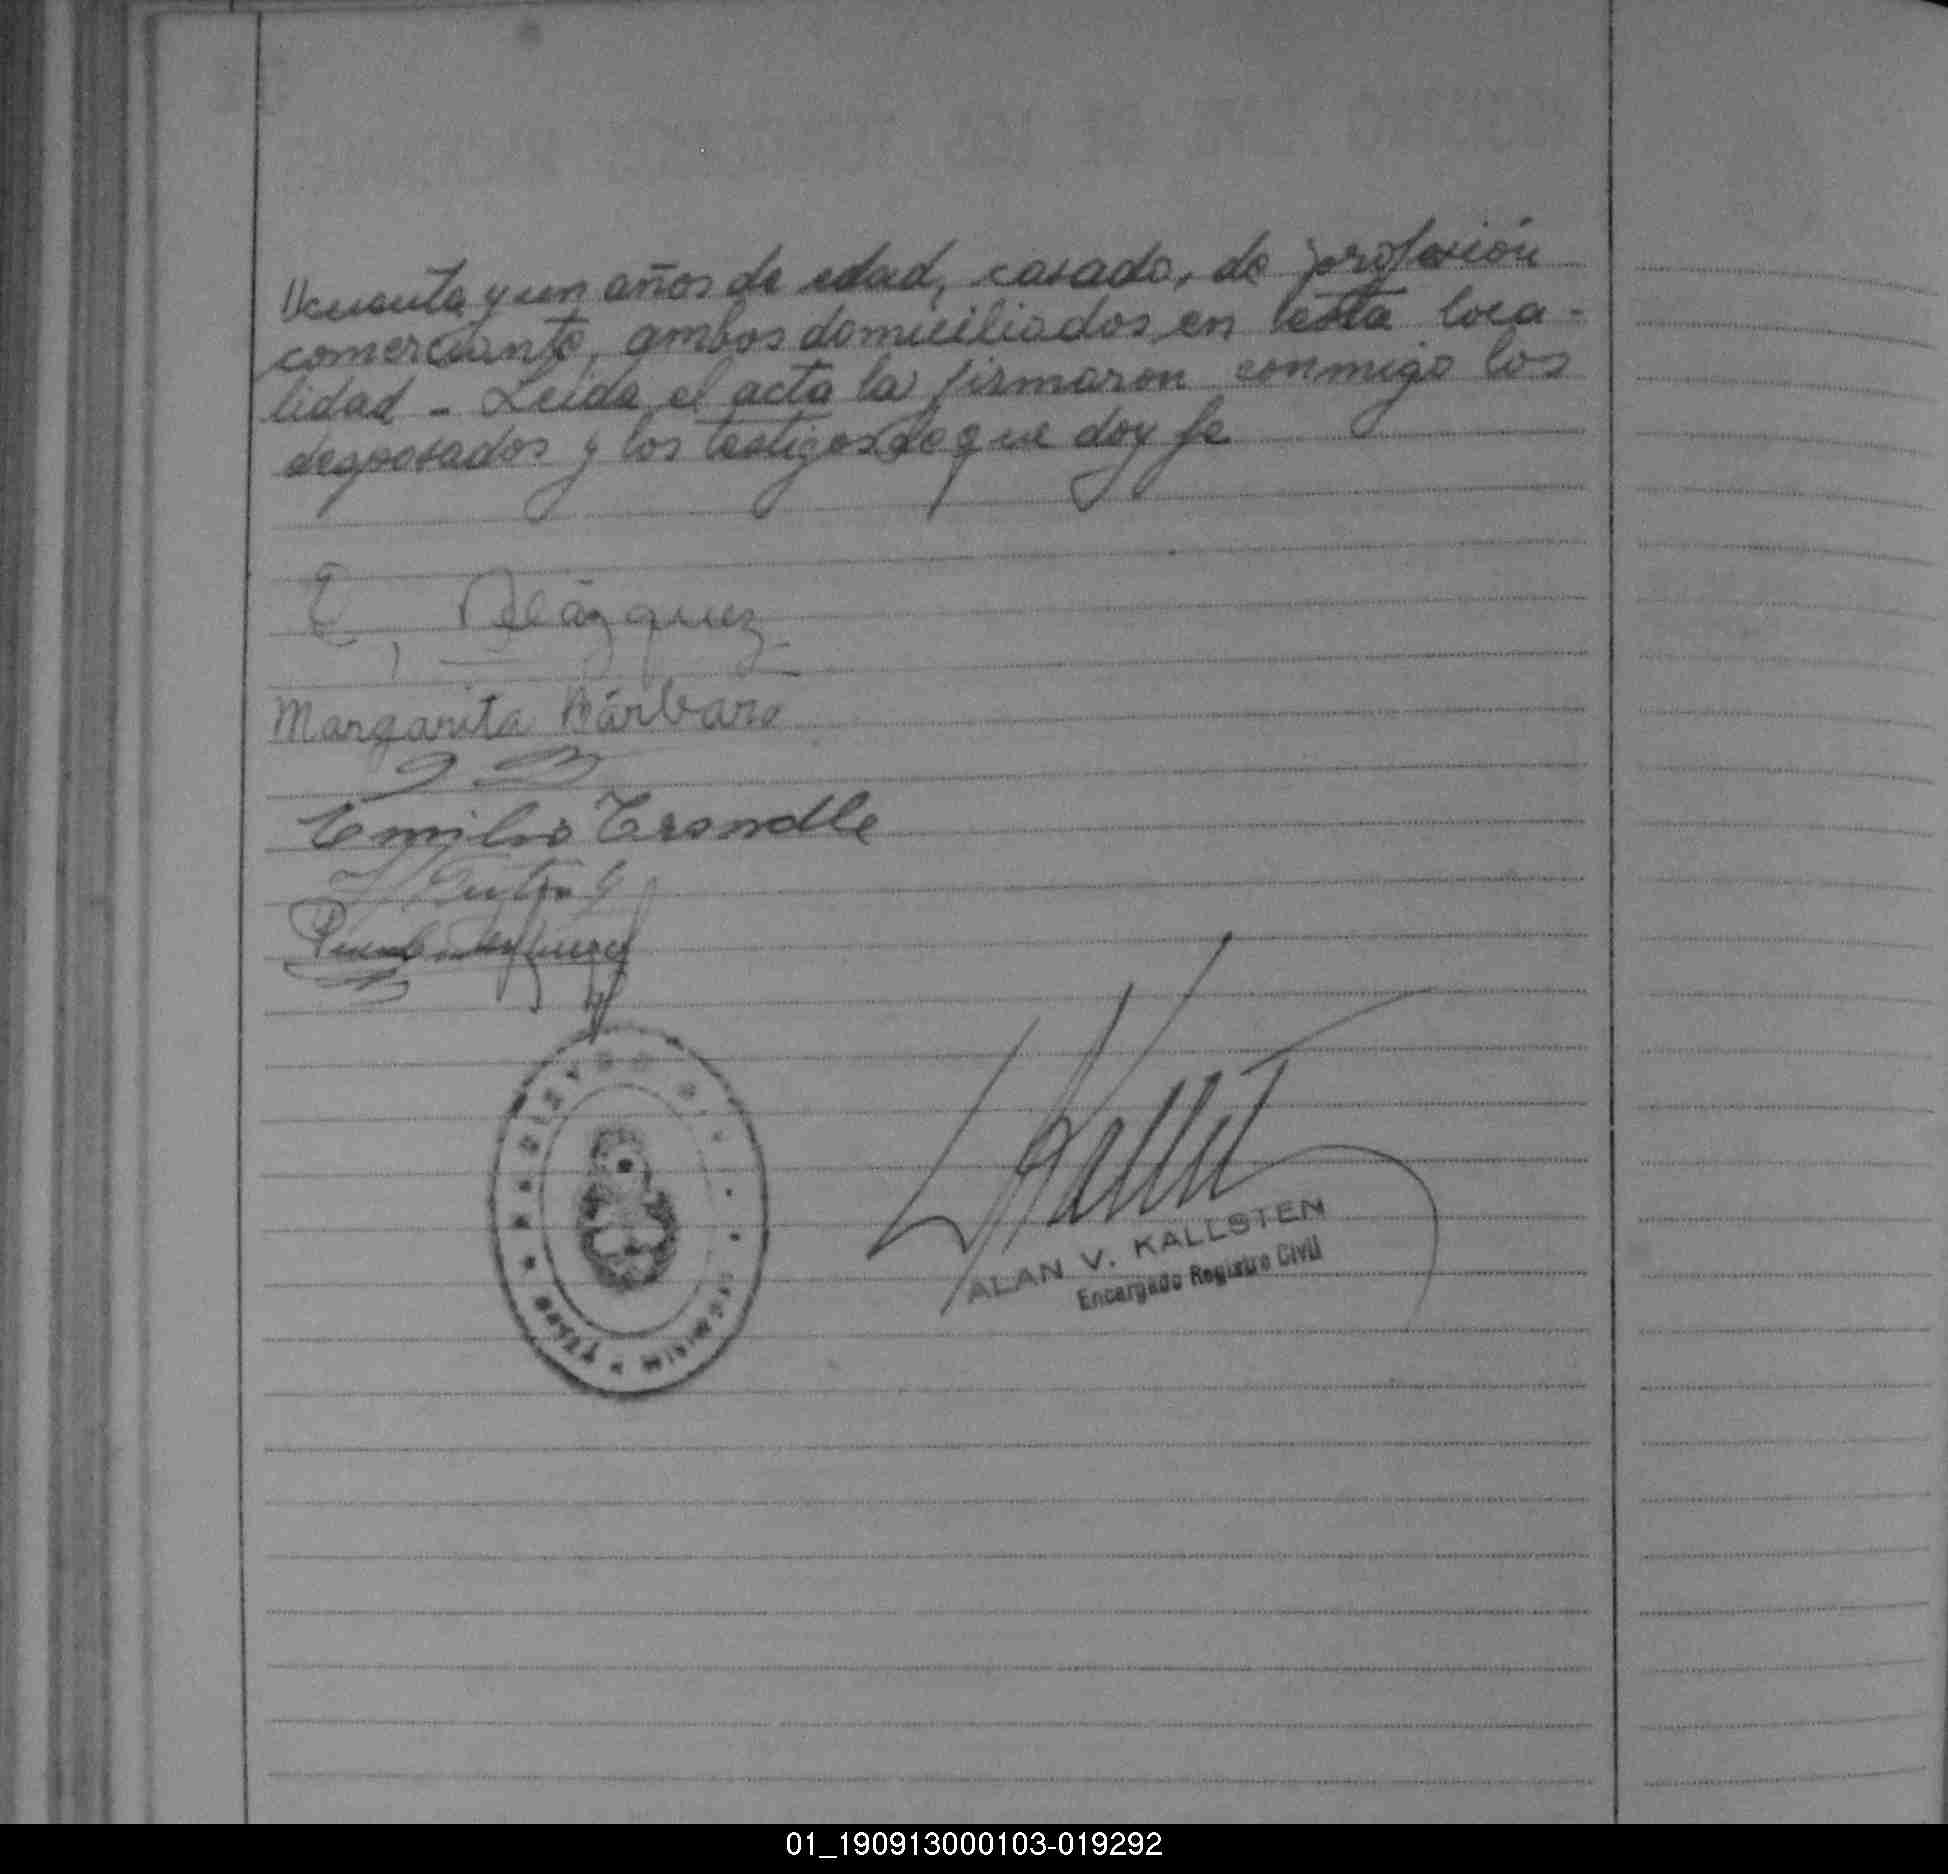 cuenta y un años de edad, casado, de profesión
comerciante, ambos domiciliados en esta loca-
lidad - Leida el acta la firmaron conmigo los
desposados y los testigos de que doy fe
E, Velázquez
Margarita Bárbaro
Emilio Trondle
ALAN V. KALLSTEN
Encargado Registro Civil
01_190913000103-019292